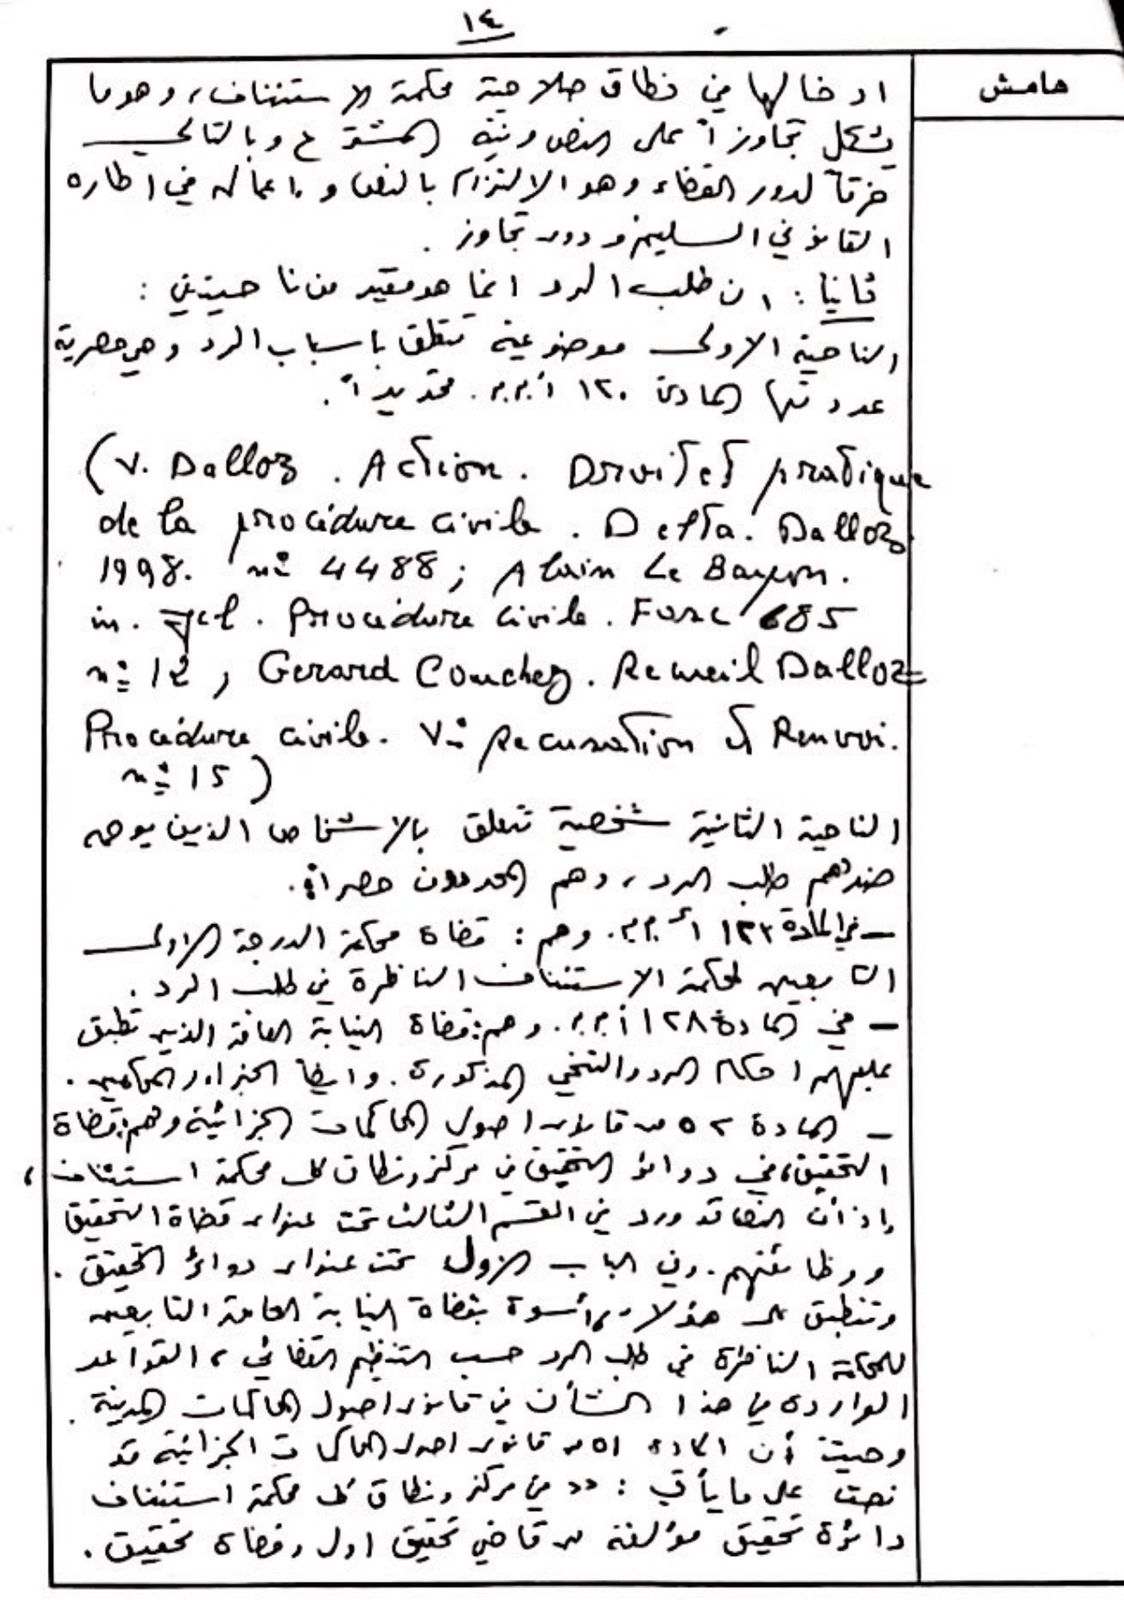 ١٤
هامش
ادخالها في نطاق صلاحية محكمة الاستئناف، وهو ما
يشكل تجاوزاً على النص ونية المشترع وبالتالي
خرقاً لدور القضاء وهو الالتزام بالنص واعماله في اطاره
القانوني السليم ودون تجاوز.
ثانياً: ان طلب الرد انما هو مقيد من ناحيتين:
الناحية الاولى موضوعية تتعلق باسباب الرد وهي حصرية
عددتها المادة ١٢٠ أ.م.م. تحديداً.
(V. Dalloz. Action. Droit et pratique
de la procédure civile. Delta. Dalloz
1998. n° 4488; Alain Le Bayon.
in. Jcl. Procédure civile. Fasc 685
n° 12, Gerard Couchez. Recueil Dalloz=
Procédure civile. V° Recusation et Renvoi.
n° 15)
الناحية الثانية شخصية تتعلق بالاشخاص الذين يوجه
ضدهم طلب الرد، وهم المحددون حصراً:
- في المادة ١٢٣ أ.م.م. وهم: قضاة محكمة الدرجة الاولى
التابعين لمحكمة الاستئناف الناظرة في طلب الرد.
- في المادة ١٢٨ أ.م.م. وهم: قضاة النيابة العامة الذين تطبق
عليهم احكام الرد والتنحي المذكورة. وايضا الخبراء والمحكمين.
- المادة ٥٢ من قانون اصول المحاكمات الجزائية وهم: قضاة
التحقيق، في دوائر التحقيق في مركز ونطاق كل محكمة استئناف،
إذ أن النص قد ورد في القسم الثالث تحت عنوان قضاة التحقيق
ووظائفهم. وفي الباب الاول تحت عنوان دوائر التحقيق.
وتنطبق على هؤلاء، أسوة بقضاة النيابة العامة التابعين
للمحكمة الناظرة في طلب الرد حسب التنظيم القضائي، القواعد
الواردة في هذا الشأن في قانون اصول المحاكمات المدنية.
وحيث أن المادة ٥١ من قانون اصول المحاكمات الجزائية قد
نصت على ما يأتي: "في مركز ونطاق كل محكمة استئناف
دائرة تحقيق مؤلفة من قاضي تحقيق اول وقضاة تحقيق.